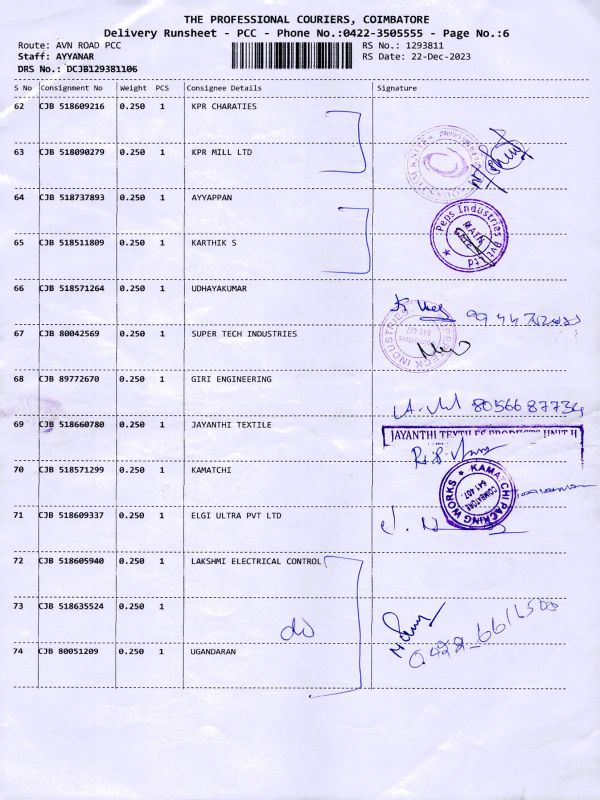 THE PROFESSIONAL COURIERS, COIMBATORE
Delivery Runsheet - PCC - Phone No.:0422-3505555 - Page No.:6
Route: AVN ROAD PCC RS No.: 1293811
Staff: AYYANAR RS Date: 22-Dec-2023
DRS No.: DCJB129381106
S No Consignment No Weight PCS Consignee Details Signature
62 CJB 518609216 0.250 1 KPR CHARATIES
63 CJB 518090279 0.250 1 KPR MILL LTD
64 CJB 518737893 0.250 1 AYYAPPAN
Peps Industries Pvt Ltd
65 CJB 518511809 0.250 1 KARTHIK S
66 CJB 518571264 0.250 1 UDHAYAKUMAR
67 CJB 80042569 0.250 1 SUPER TECH INDUSTRIES
68 CJB 89772670 0.250 1 GIRI ENGINEERING
8056687734
69 CJB 518660780 0.250 1 JAYANTHI TEXTILE
JAYANTHI TEXTILES PRODUCTS UNIT II
70 CJB 518571299 0.250 1 KAMATCHI
KAMATCHI PACKING WORKS
COIMBATORE
641 407.
71 CJB 518609337 0.250 1 ELGI ULTRA PVT LTD
72 CJB 518605940 0.250 1 LAKSHMI ELECTRICAL CONTROL
73 CJB 518635524 0.250 1
do
74 CJB 80051209 0.250 1 UGANDARAN